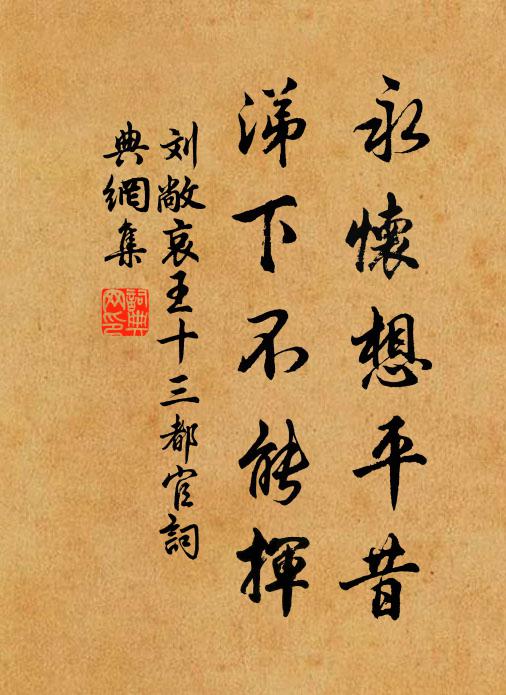 永懷想平昔
涕下不能揮
刘敞哀王十三都官詞
典網集
詞典网印